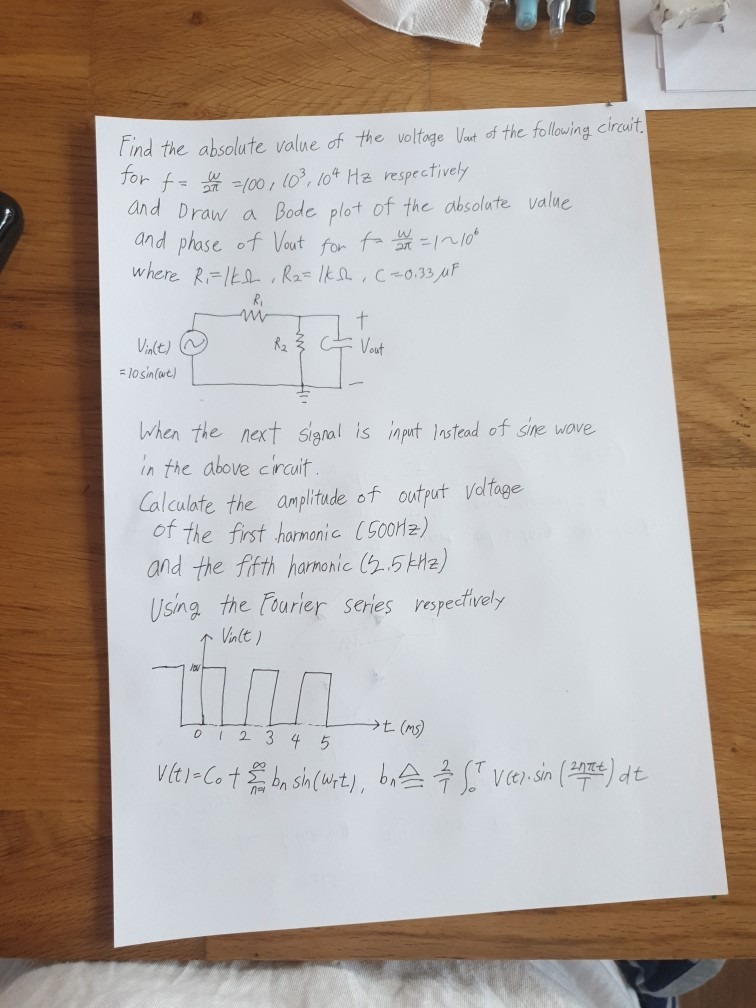 Find the absolute value of the voltage Vout of the following circuit.
for f = ω/2π = 100, 10³, 10⁴ Hz respectively
and Draw a Bode plot of the absolute value
and phase of Vout for f = ω/2π = 1~10⁶
where R₁=1kΩ, R₂=1kΩ, C=0.33μF
R₁
+
Vin(t) R₂ C Vout
=10sin(ωt)
−
When the next signal is input instead of sine wave
in the above circuit.
Calculate the amplitude of output voltage
of the first harmonic (500Hz)
and the fifth harmonic (2.5kHz)
Using the Fourier series respectively
Vin(t)
10V
0 1 2 3 4 5 t (ms)
V(t)=C₀+ ∞Σn=1 bₙ sin(ωᵣt), bₙ ≜ 2/T ∫₀ᵀ V(t)·sin(2nπt/T)dt